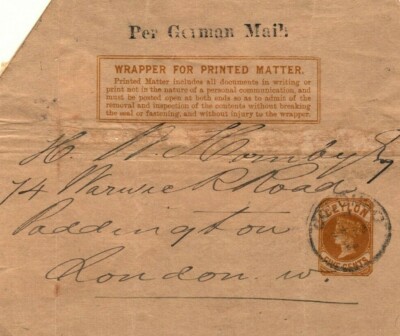 Per German Mail
WRAPPER FOR PRINTED MATTER.
Printed Matter includes all documents in writing or
print not in the nature of a personal communication, and
must be posted open at both ends so as to admit of the
removal and inspection of the contents without breaking
the seal or fastening, and without injury to the wrapper.
H. W. Hornby Esq
74 Warwick Road
Paddington
London W.
CEYLON
FIVE CENTS